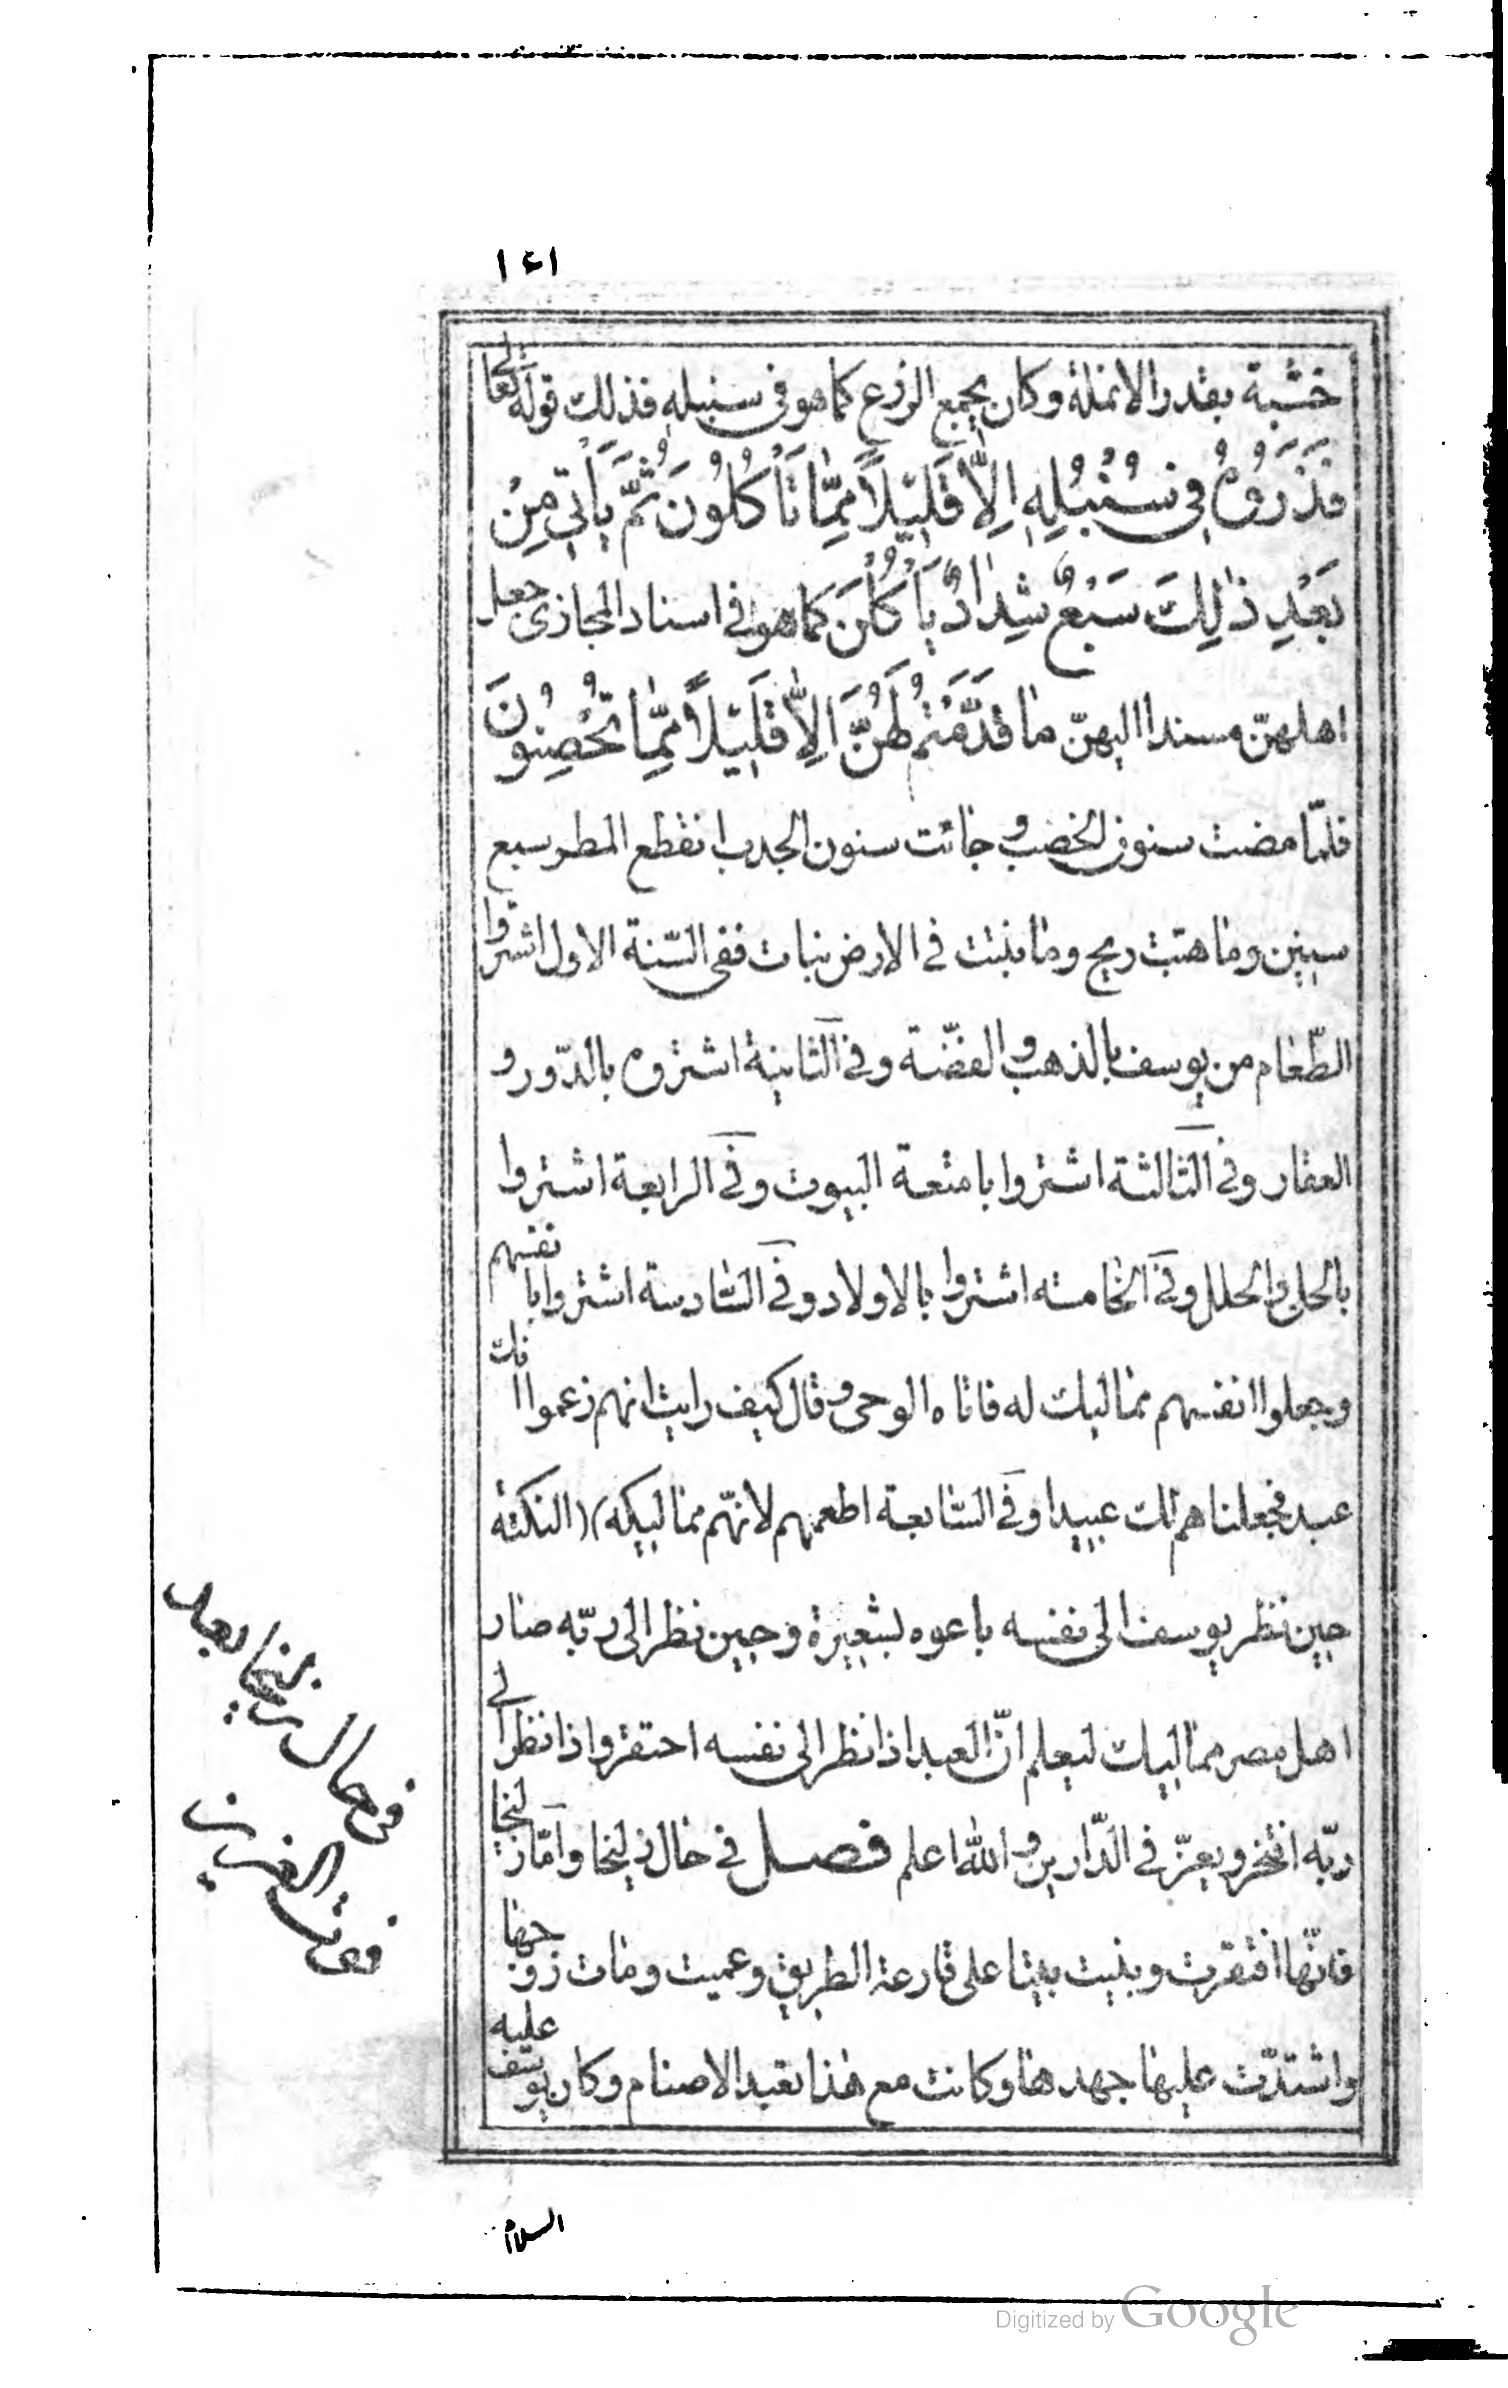 ١٤١
خشبة بقدر الانملة وكان يجمع الزرع كما هو فى سنبله فذلك قوله تعالى
فَذَرُوهُ فِى سُنْبُلِهِ اِلَّا قَلِيْلًا مِمَّا تَأْكُلُونَ ثُمَّ يَأْتِى مِنْ
بَعْدِ ذٰلِكَ سَبْعٌ شِدَادٌ يَأْكُلْنَ كما هو فى اسناد المجازى جعل
اهلهنّ مسندا اليهنّ مَا قَدَّمْتُمْ لَهُنَّ اِلَّا قَلِيْلًا مِمَّا تُحْصِنُونَ
فلمّا مضت سنون الخصب و جائت سنون الجدب انقطع المطر سبع
سنين وما هبت ريح وما نبتت فى الارض نبات ففى السّنة الاول اشتروا
الطّعام من يوسف بالذهب و الفضّة وفى الثانية اشتروه بالدّور و
العقار وفى الثالثة اشتروا بامتعة البيوت وفى الرابعة اشتروا
بالحلى والحلل وفى الخامسه اشتروا بالاولاد وفى السّادسة اشتروا بانفسهم
وجعلوا انفسهم مماليك له فاتاه الوحى و قال كيف رايت انهم زعموا انك
عبد فجعلناهم لك عبيدا وفى السّابعة اطعمهم لانّهم مماليكه (النكتة)
حين نظر يوسف الى نفسه باعوه بشعيرة وحين نظر الى ربّه صار
اهل مصر مماليك ليعلم انّ العبد اذا نظر الى نفسه احتقر واذا نظر الى
ربّه افتخر ويعزّ فى الدّارين و الله اعلم فصل فى حال زليخا وامّا زليخا
فانّها افتقرت وبنيت بيتا على قارعة الطريق وعميت ومات زوجها
واشتدّت عليها جهدها وكانت مع هذا تعبد الاصنام وكان يوسف عليه
السلام
فى حال زليخا بعد
فوت العزيز
Digitized by Google